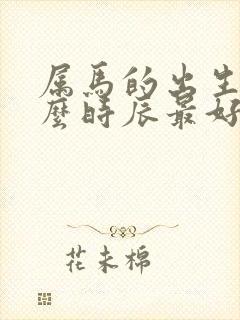 属馬的出生
麼時辰最好
花未棉